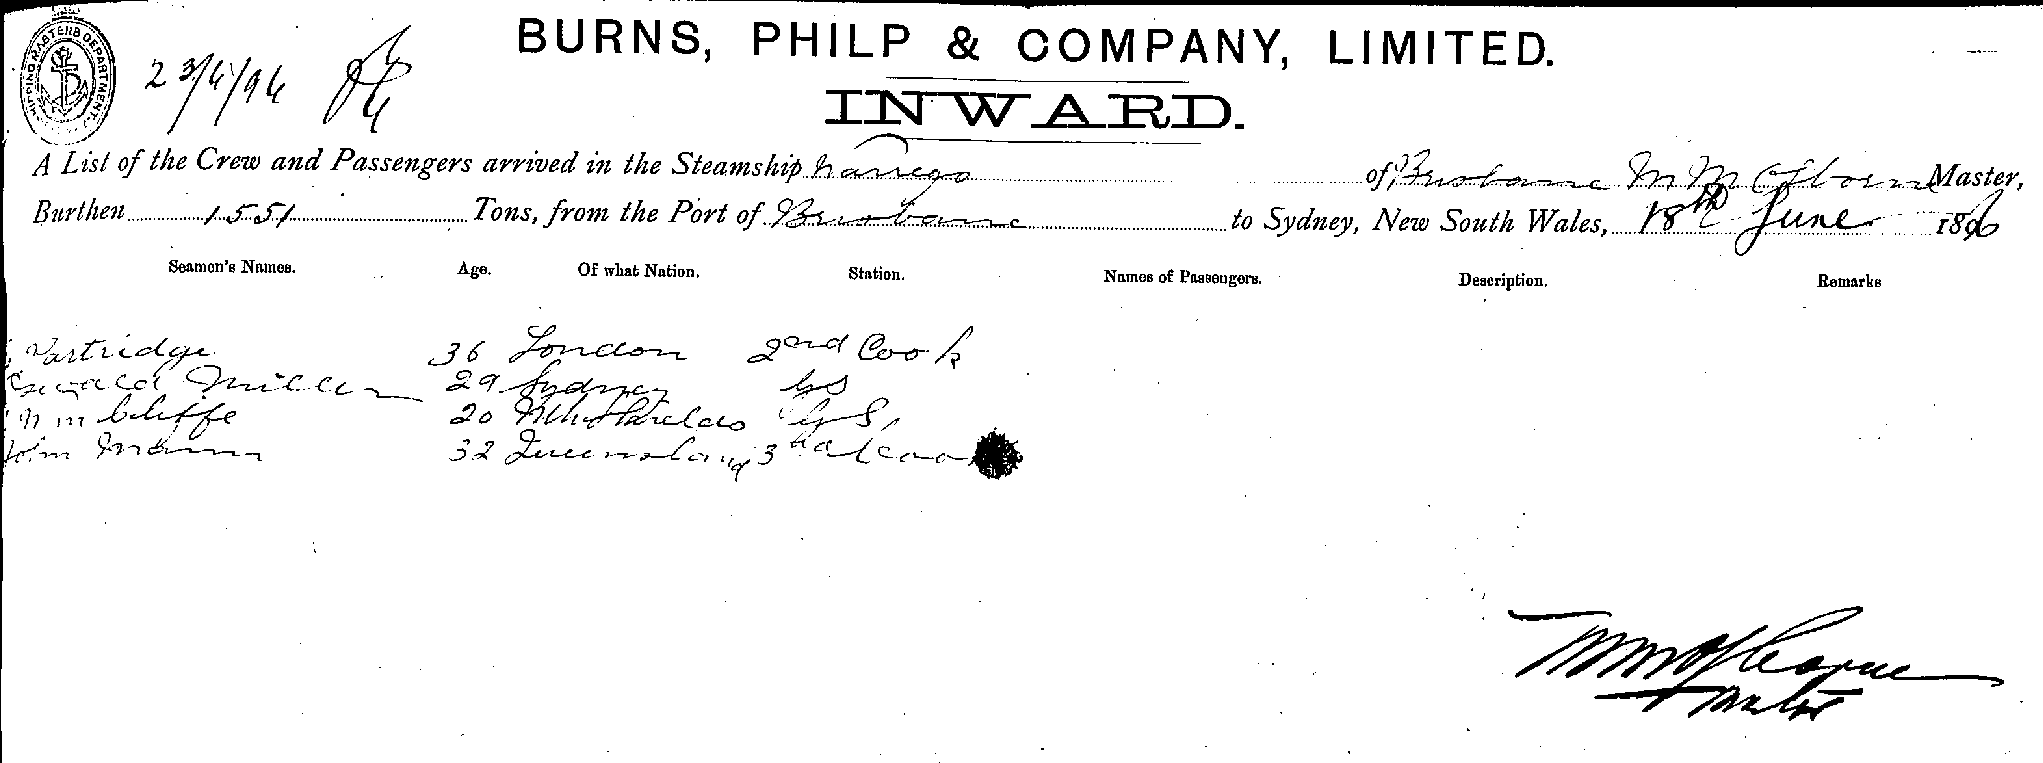 SHIPPING MASTERS DEPARTMENT
BURNS, PHILP & COMPANY, LIMITED.
INWARD.
A List of the Crew and Passengers arrived in the Steamship Warrego of Brisbane M M Osborne Master,
Burthen 1551 Tons, from the Port of Brisbane to Sydney, New South Wales, 18th June 1896
Seamen's Names. Age. Of what Nation. Station. Names of Passengers. Description. Remarks
Partridge 36 London 2nd Cook
Oswald Miller 29 Sydney GS
Wm Cliffe 20 GS,
John Mann 32 Queensland 3rd
M M Osborne
Master